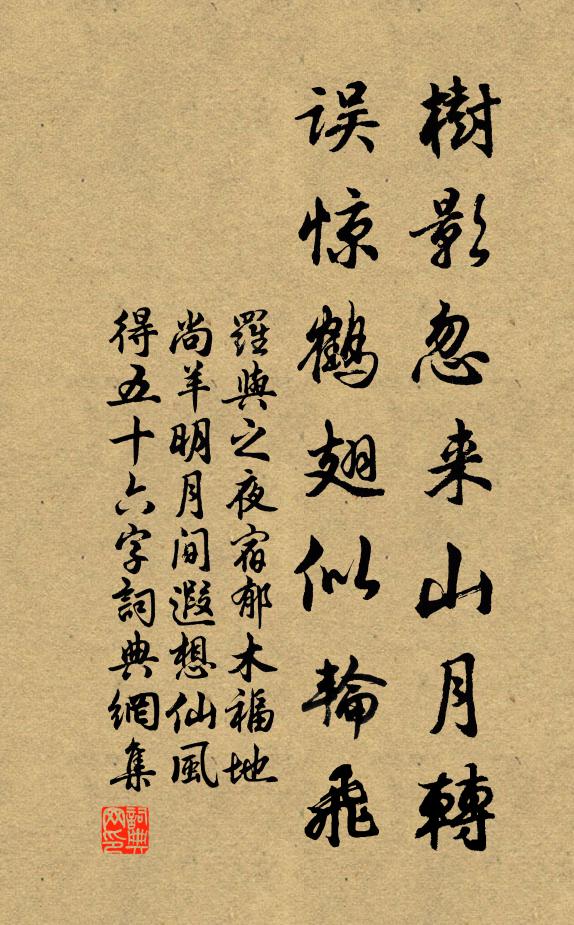 樹影忽来山月轉
误惊鹤翅似輪飛
羅與之夜宿郁木福地
尚羊明月间遐想仙風
得五十六字詞典網集
詞典网印